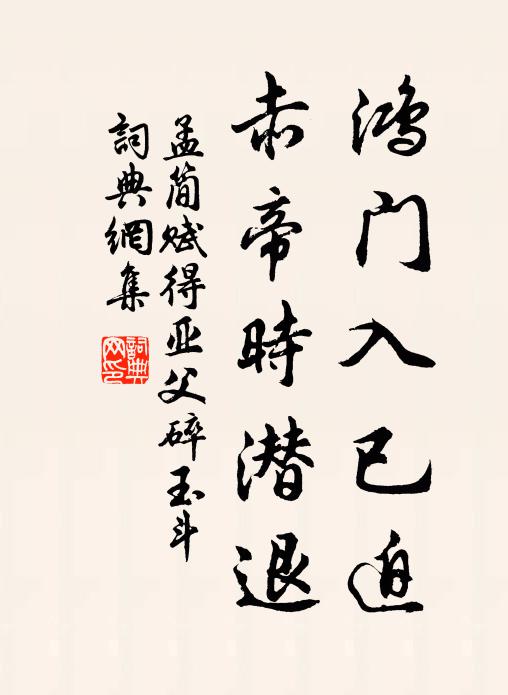 鸿门入已迫
赤帝時潜退
孟简赋得亚父碎玉斗
詞典網集
詞典网印